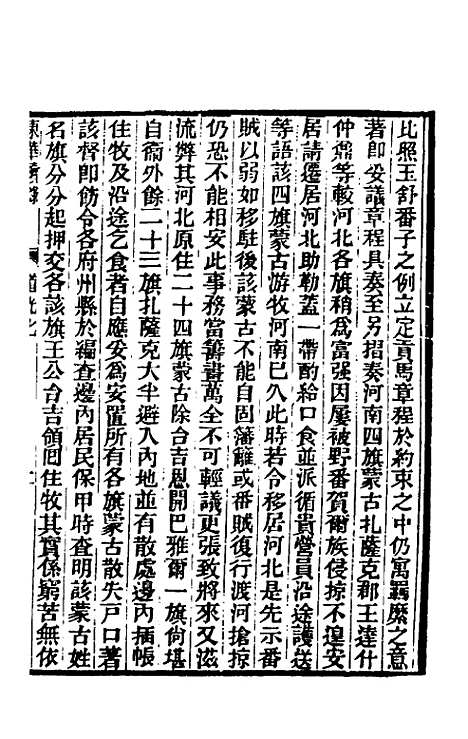 比照玉舒番子之例立定貢馬章程於約束之中仍寓羈縻之意
著卽妥議章程具奏至另摺奏河南四旗蒙古扎薩克郡王達什
仲鼐等較河北各旗稍爲富强因屢被野番賀爾族侵掠不遑安
居請遷居河北助勒蓋一帶酌給口食並派循貴營員沿途護送
等語該四旗蒙古游牧河南巳久此時若令移居河北是先示番
賊以弱如移駐後該蒙古不能自固藩籬或番賊復行渡河搶掠
仍恐不能相安此事務當籌畫萬全不可輕議更張致將來又滋
流弊其河北原住二十四旗蒙古除台吉恩開巴雅爾一旗尙堪
自衞外餘二十三旗扎薩克大半避入內地並有散處邊內插帳
住牧及沿途乞食者自應妥爲安置所有各旗蒙古散失戶口著
該督卽飭令各府州縣於編查邊內居民保甲時查明該蒙古姓
名旗分分起押交各該旗王公台吉領回住牧其實係窮苦無依
東華續錄 道光七